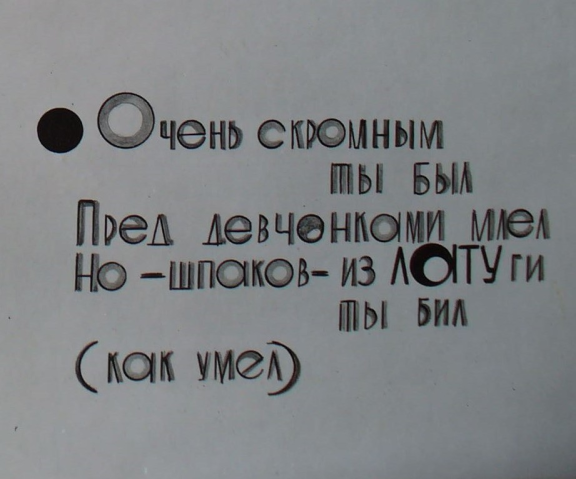 Очень скромным
ты был
Пред девчонками млел
Но -шпаков- из ЛАТУги
ты бил
(как умел)